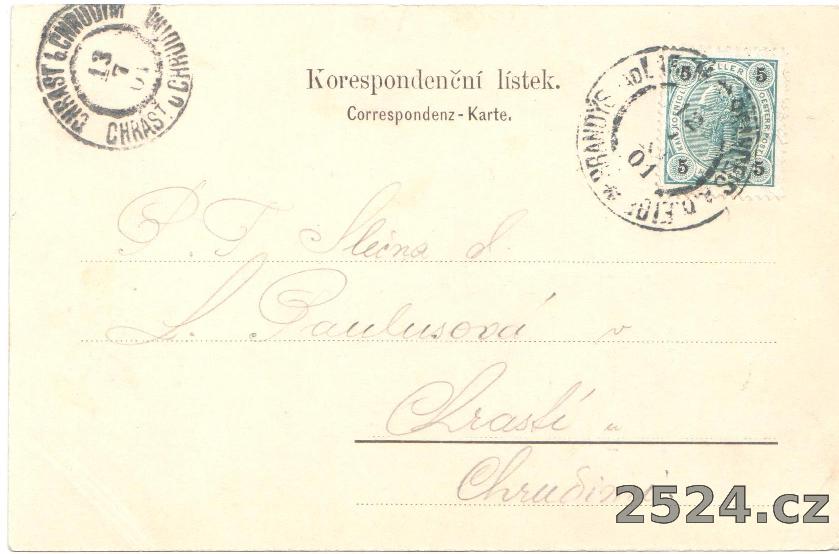 CHRAST b. CHRUDIM
CHRAST U CHRUDIM
13
7
01
Korespondenční lístek.
Correspondenz-Karte.
BRANDÝS
01
5 HELLER 5
5 5
P. T. Slečna d.
L. Paulusová v
Chrasti u
Chrudimi
2524.cz